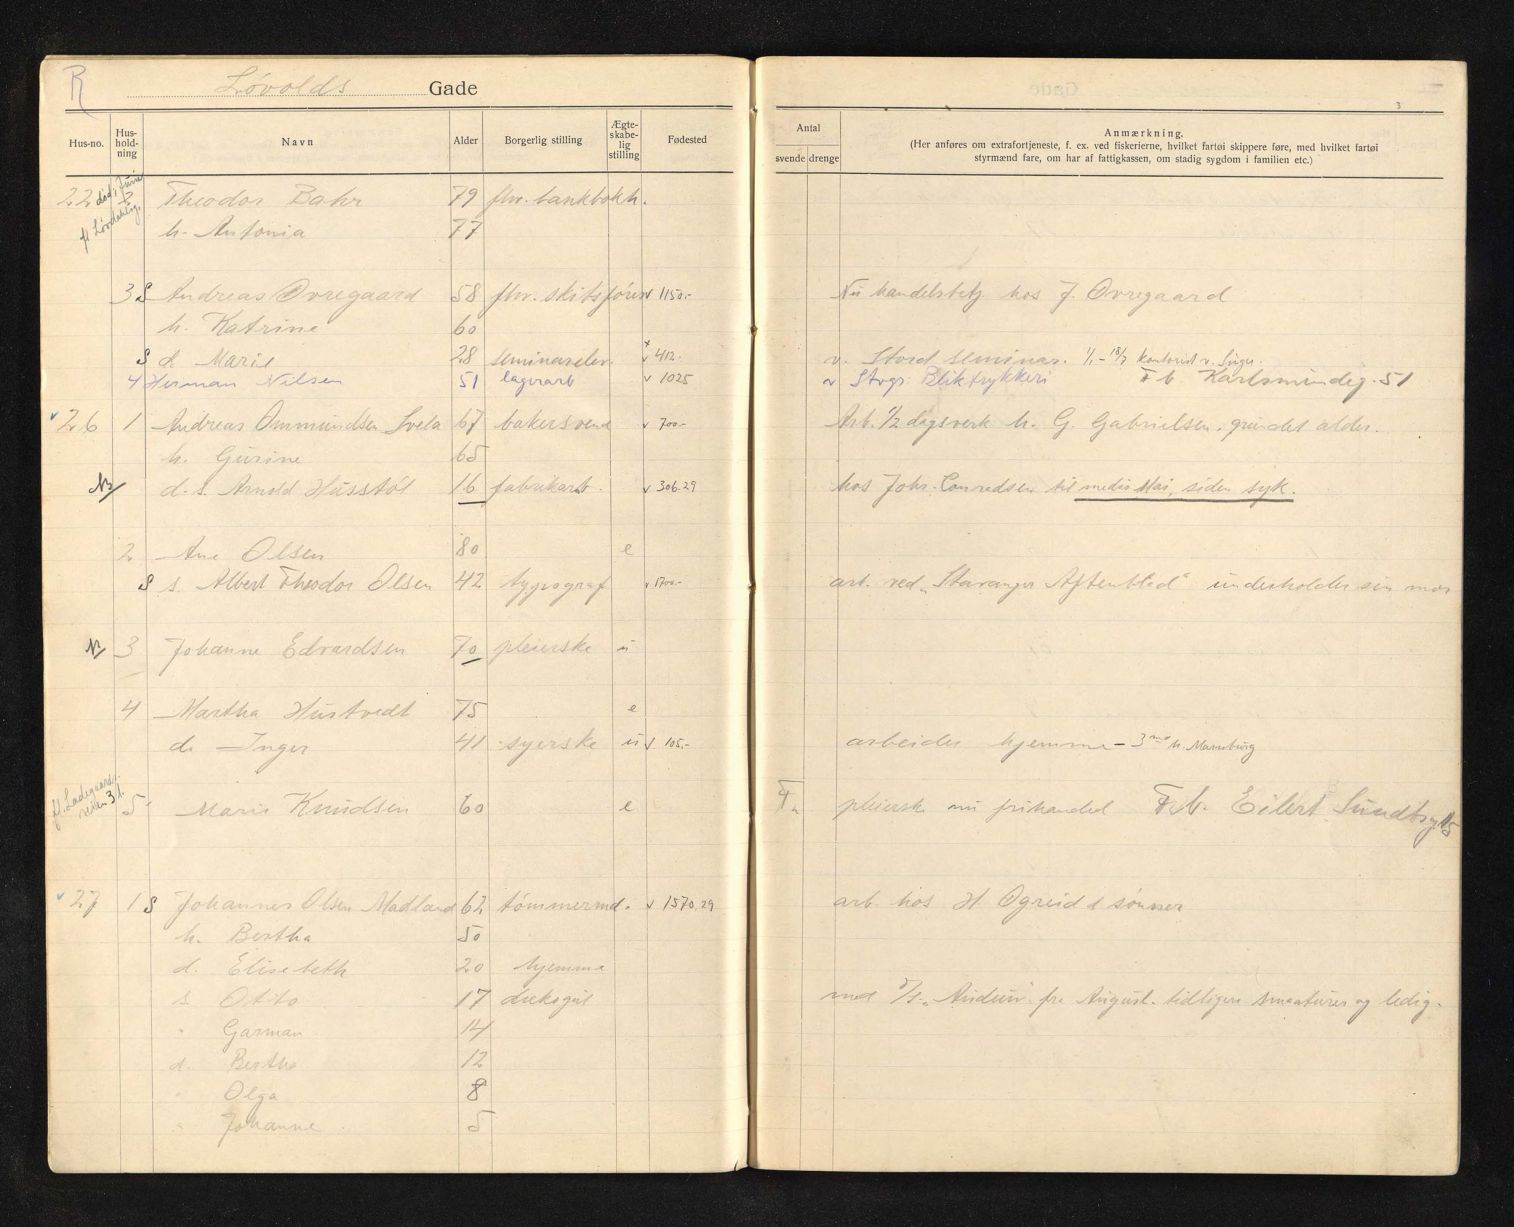 R
Løvolds Gade
3
Hus-no. Hus-hold-ning Navn Alder Borgerlig stilling Ægte-skabe-lig stilling Fødested Antal svende drenge Anmærkning.
(Her anføres om extrafortjeneste, f. ex. ved fiskerierne, hvilket fartøi skippere føre, med hvilket fartøi
styrmænd fare, om har af fattigkassen, om stadig sygdom i familien etc.)
22 2 Theodor Bahr 79 fhv. bankbokh.
død i Juni
fl Løvdahlsg.
h. Antonia 77
3 S Andreas Øvregaard 58 fhv. skibsfører v 1150.- Nu handelsbetj hos J. Øvregaard
h. Katrine 60
S d. Marie 28 seminarelev x v 412.- v. Stord seminar. 1/1 - 18/7 kontorist v.
4 Herman Nilsen 51 lagerarb v 1025 v Stvgr. Bliktrykkeri F b Karlsmindeg. 51
v 26 1 Andreas Ommundsen Svela 67 bakersvend v 700.- Arb. 1/2 dagsverk h. G. Gabrielsen. grundet alder.
h. Gurine 65
N d. s. Arnold Husstøl 16 fabrikarb. v 306.29 hos Johs. Conradsen til medio Mai, siden syk.
2 Ane Olsen 80 e
S s. Albert Theodor Olsen 42 typograf v 1700.- arb. ved „Stavanger Aftenblad" underholder sin mor
N 3 Johanne Edvardsen 70 pleierske u
4 Martha Hustvedt 75 e
d. Inger 41 syerske u v 105.- arbeider hjemme - 3 h.
fl. Ladegaards-
veien 31.
5 Marie Knudsen 60 e pleiersk nu frihandel F. b. Eilert Sundtsg 15
v 27 1 S Johannes Olsen Madland 62 tømmermd. v 1570.29 arb. hos H Øgreid & sønner
h. Bertha 50
d. Elisabeth 20 hjemme
s. Otto 17 dæksgut med D/S „Audun" fra August. tidligere smaaturer og ledig.
" Garman 14
d. Bertha 12
" Olga 8
" Johanne 5